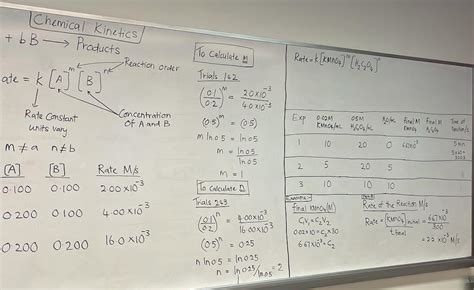 Chemical Kinetics
+ bB → Products
Reaction order
ate = k [A]^m [B]^n
Rate Constant
units vary
Concentration
of A and B
m ≠ a n ≠ b
[A] [B] Rate M/s
0.100 0.100 2.00×10^-3
0.200 0.100 4.00×10^-3
0.200 0.200 16.0×10^-3
To Calculate m
Trials 1&2
(0.1/0.2)^m = 2.0×10^-3/4.0×10^-3
(0.5)^m = (0.5)
m ln 0.5 = ln 0.5
m = ln 0.5/ln 0.5
m = 1
To Calculate n
Trials 2&3
(0.1/0.2)^n = 4.00×10^-3/16.00×10^-3
(0.5)^n = 0.25
n ln 0.5 = 0.25
n = ln 0.25/ln 0.5 = 2
Rate = k [KMnO4]^m [H2C2O4]^n
Exp 0.02M KMnO4/mL 0.5M H2C2O4/mL H2O/mL final M KMnO4 Final M H2C2O4 Time of
1 10 20 0 6.67×10^-3 5 min
2 5 20 5
3 10 10 10
Final KMnO4 (M)
C1V1 = C2V2
0.02×10 = C2×30
6.67×10^-3 = C2
Rate of the Reaction M/s
Rate = [KMnO4] initial/t final = 6.67×10^-3/300
= 2.2×10^-5 M/s